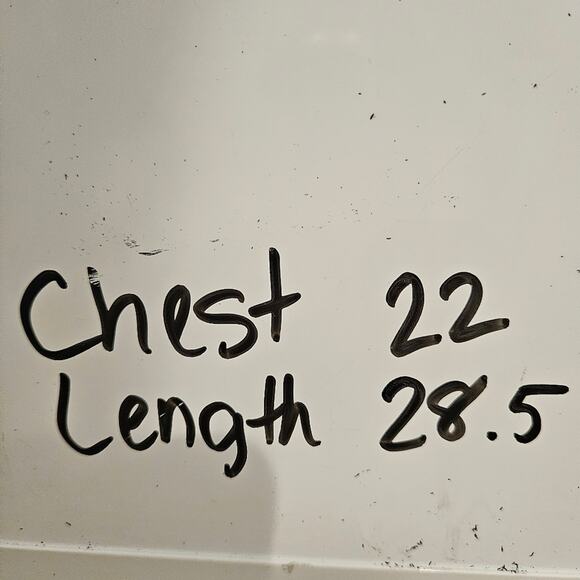 Chest 22
Length 28.5